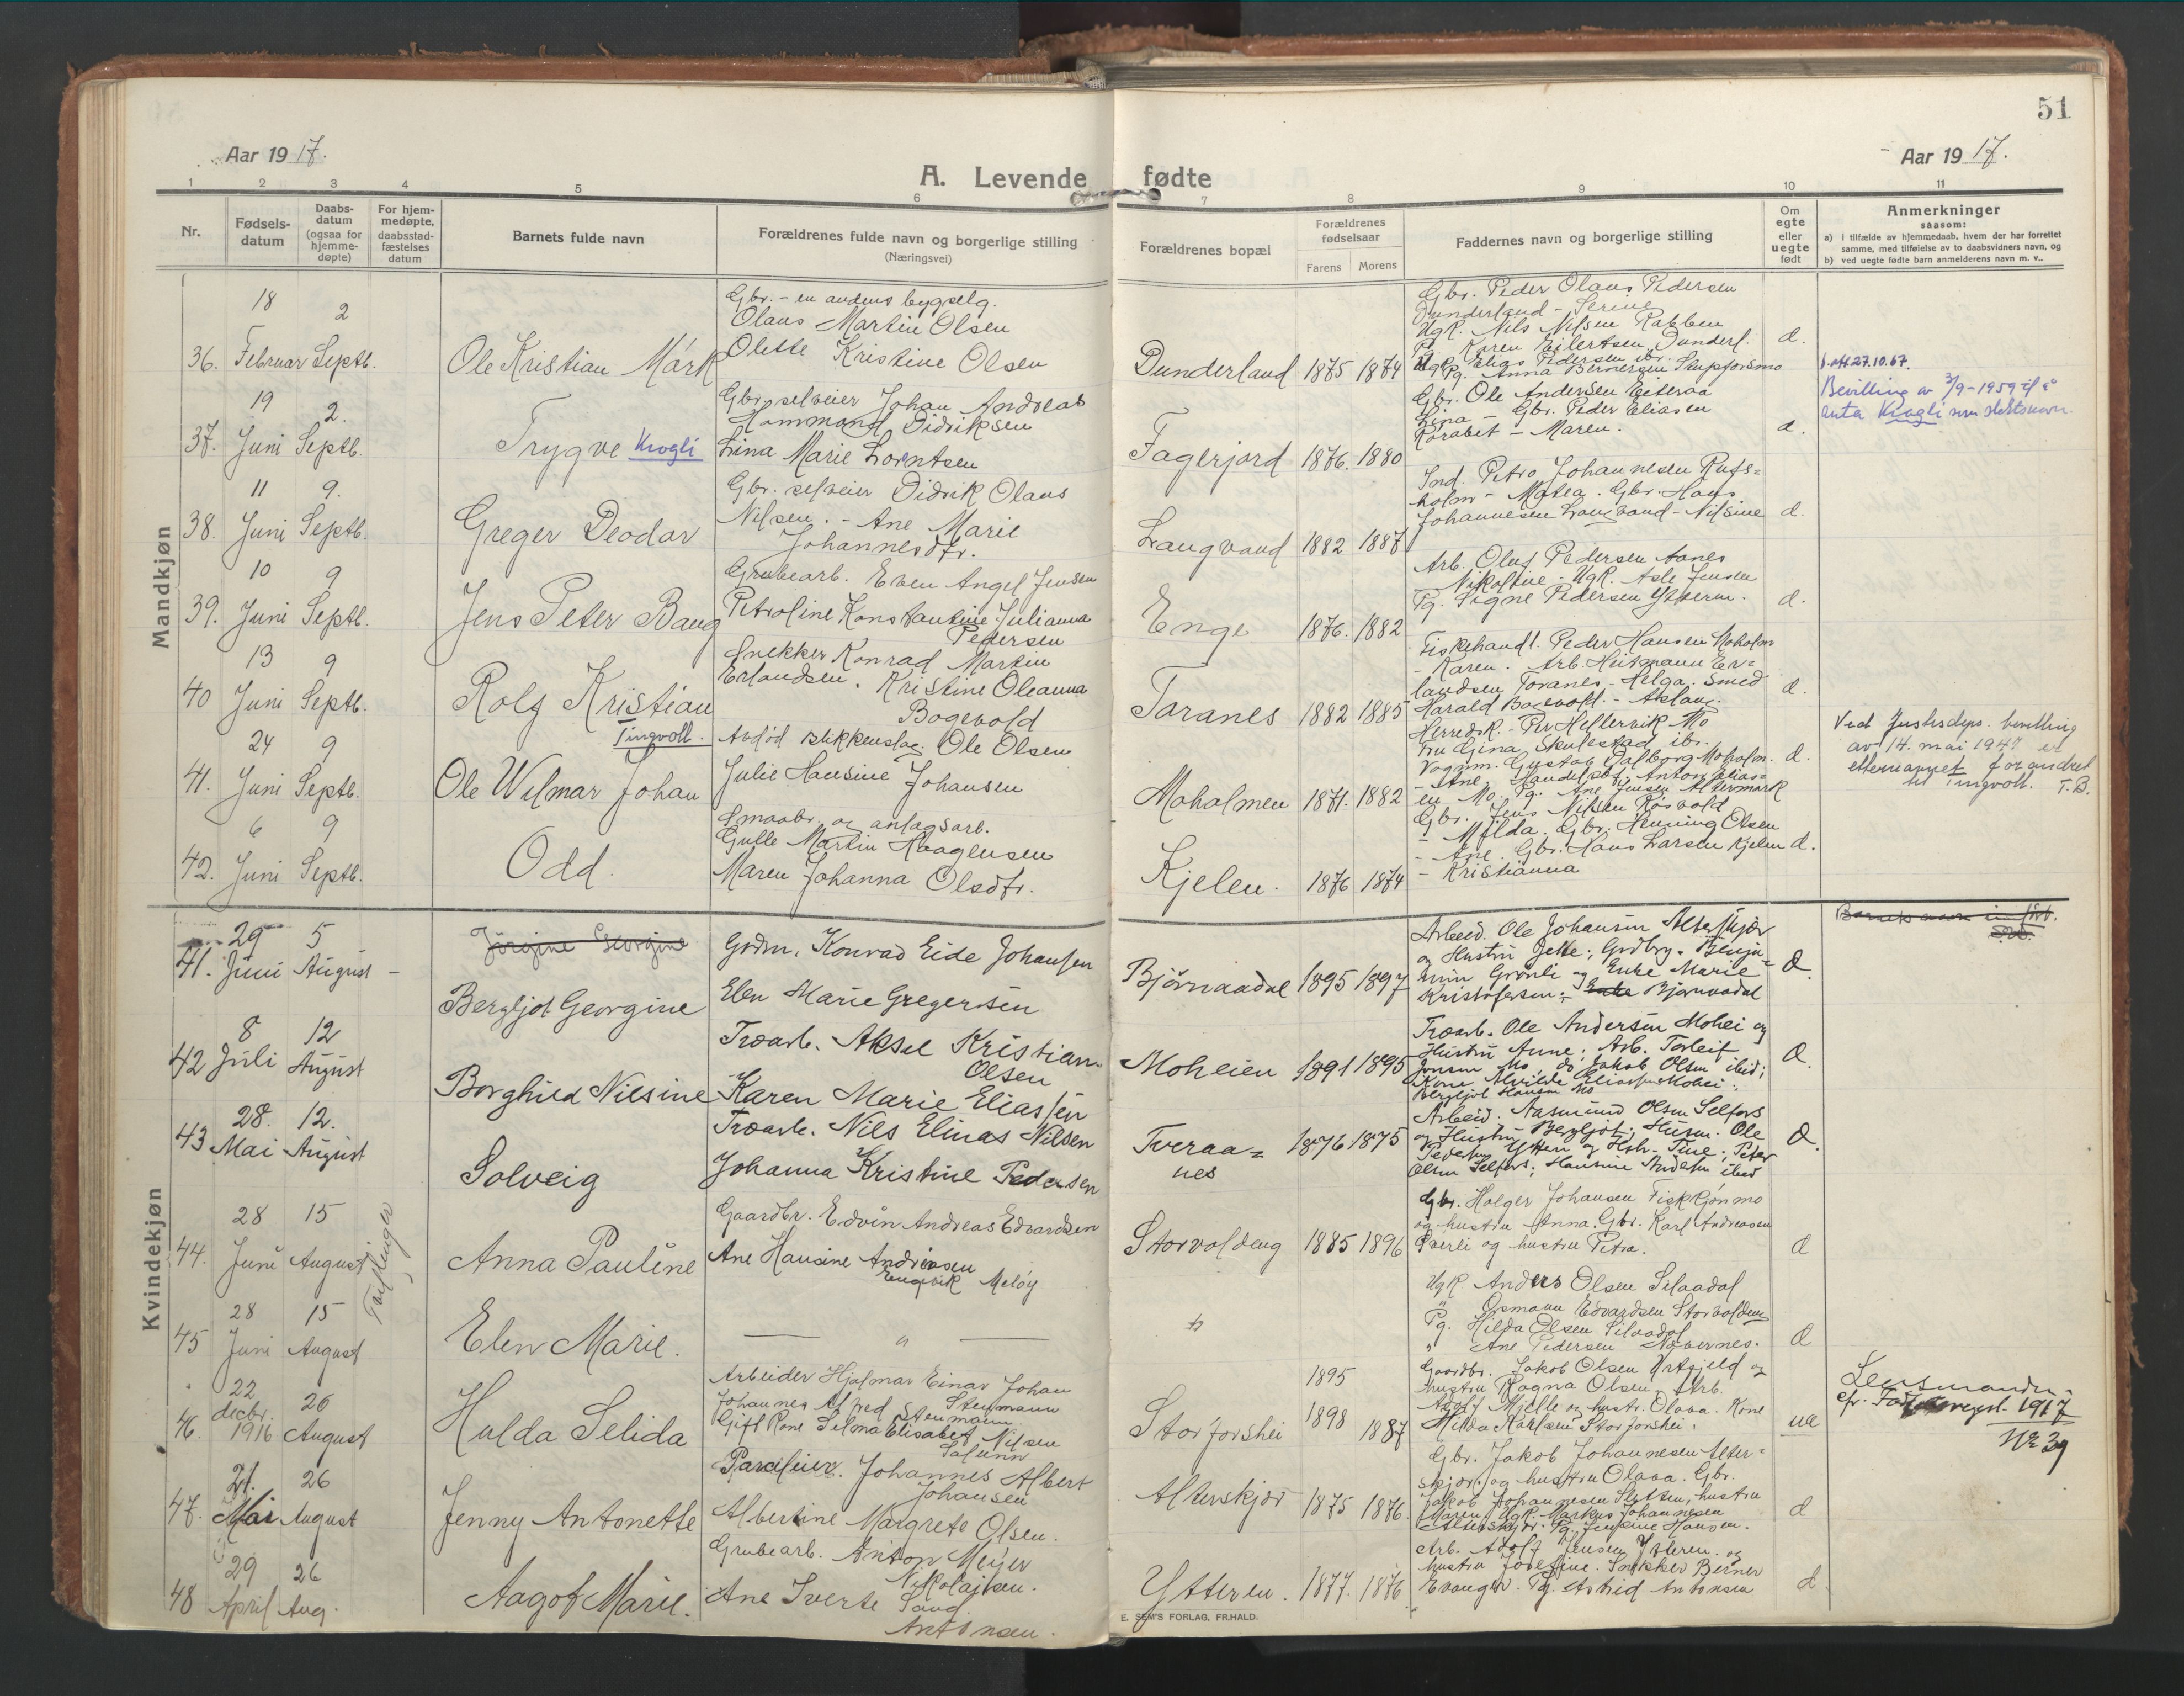 51
Aar 1917.
Aar 1917.
A. Levende fødte
1 2 3 4 5 6 7 8 9 10 11
Nr.
Fødsels-
datum
Daabs-
datum
(ogsaa for
hjemme-
døpte)
For hjem-
medøpte,
daabsstad-
fæstelses
datum
Barnets fulde navn
Forældrenes fulde navn og borgerlige stilling
(Næringsvei)
Forældrenes bopæl
Forældrenes
fødselsaar
Farens Morens
Faddernes navn og borgerlige stilling
Om
egte
eller
uegte
født
Anmerkninger
saasom:
a) i tilfælde av hjemmedaab, hvem der har forrettet
samme, med tilføielse av to daabsvidners navn, og
b) ved uegte fødte barn anmelderens navn m. v..
Mandkjøn
36. 18 Februar 2 Septb.
Ole Kristian Mårk
Gbr. - en andens bygselg.
Olaus Martin Olsen
Olette Kristine Olsen
Dunderland 1875 1874
Gbr. Peder Olaus Pedersen
Dunderland - Serine
Ugk. Nils Nilsen Rabben
Pg. Karen Eilertsen Dunderl.
Ugk. Elias Pedersen ibr.
Pg. Anna Bernersen Skupforsmo
d.
37. 19 Juni 2. Septb.
Trygve Krogli
Gbr. selveier Johan Andreas
Hammond Didriksen
Lina Marie Lorntsen
Fagerjord 1876. 1880
Gbr. Ole Andersen Eiteraa
Lina - Gbr. Peder Eliasen
- Maren.
d.
b.att 27.10.67.
Bevilling av 3/9-1959 til å
anta Krogli som slektsnavn.
38. 11 Juni 9. Septb.
Greger Deodor
Gbr. selveier Didrik Olaus
Nilsen. - Ane Marie
Johannesdtr.
Langvand 1882 1887
Ind. Petro Johannesen Rufs=
holm - Matea. Gbr. Hans
Johannesen Langvand - Nilsine
d.
39. 10 Juni 9 Septb.
Jens Peter Bang
Grubearb. Even Angel Jensen
Petroline Konstantine Julianna
Pedersen
Enge 1876. 1882
Arb. Oluf Pedersen Aanes
Nikoline - Ugk. Asle Jensen
Pg. Signe Pedersen Ytteren.
d.
40 13 Juni 9 Septb.
Rolf Kristian
Snekker Konrad Marten
Erlandsen. Kristine Oleanna
Bogevold
Toranes 1882 1885
Fiskehandl. Peder Hansen Moholm
- Karen. Arb. Heitmann Er=
landsen Toranes - Helga. Smed
Harald Bogevold. - Aslaug.
d.
41. 24 Juni 9 Septb.
Tingvoll.
Ole Wilmar Johan
Avdød blikkenslag. Ole Olsen
Julie Hansine Johansen
Moholmen 1871. 1882
Herredsk. - Per Hellervik Mo
Fru Gina Skulestad ibr.
Vognm. Gustav Dalborg Moholm.
- Ane. Handelsbet. Anton Elias=
en Mo. Pg. Ane Jensen Altermark
d.
Ved Justisdeps. bevilling
av 14. mai 1947 er
etternavnet forandret
til Tingvoll. T.B.
42. 6 Juni 9 Septb.
Odd.
Smaabr. og anlagsarb.
Gulle Martin Haagensen
Maren Johanna Olsdtr.
Kjelen. 1876 1874
Gbr. Jens Nilsen Røsvold
- Milda. Gbr. Henning Olsen
- Ane. Gbr. Hans Larsen Kjelen
- Kristianna
d.
Kvindekjøn
41. 29 Juni 5 August
Jørgine Georgine
Bergljot Georgine
Grdm. Konrad Eide Johansen
Elen Marie Gregersen
Bjørnaadal 1895 1897
Arbeid. Ole Johansen Alterskjær
og Hustru Jette; Grdbrg. Benja=
min Grønli og Enke Marie
Kristofersen; Enke Bjørnaadal
d.
Barnets navn
42 8 Juli 12 August
Borghild Nilsine
Træarb. Aksel Kristian
Olsen
Karen Marie Eliassen
Moheien 1891 1895
Træarb. Ole Andersen Mohei og
Hustru Anne; Arb. Torleif
Jensen Mo, do Jakob Olsen ibid;
Kone Alvilde Eliassen Mohei.
Bergljot Hansen Mo
d.
43 28. Mai 12. August
Solveig
Træarb. Nils Elinas Nilsen
Johanna Kristine Pedersen
Tveraa=
nes 1876 1875
Arbeid. Aasmund Olsen Selfors
og Hustru Bergljot; Husm. Ole
Pedersen Ytteren og Hstr. Tine; Peter
Olsen Selfors; Hansine Andersen ibid
d.
Tvillinger
44. 28 Juni 15 August
Anna Pauline
Gaardbr. Edvin Andreas Edvardsen
Ane Hansine Andreasen
Engevik Meløy
Storvoldeng 1885 1896
Gbr. Holger Johansen Fiskkjønmo
og hustru Anna. Gbr. Karl Andreassen
Tverli og hustru Petra.
d
45 28 Juni 15 August
Elen Marie.
— " —
"
Ugk Anders Olsen Silaadal
" Osmann Edvardsen Storvoldeng
Pg. Hilda Olsen Silaadal
" Ane Pedersen Nævernes.
d
46. 22 decbr. 1916 26 August
Hulda Selida
Arbeider Hjalmar Einar Johan
Johannes Alfred Stenmann
Stenmann.
Gift Kone Selma Elisabet Nilsen
Storforshei 1895 1898 1887
Gaardbr. Jakob Olsen Urtfjeld og
hustru Ragna Olsen. Arb.
Adolf Mjelle og hustr. Olava. Kone
Hilda Karlsen Storforshei.
ue
Lensmanden
cfr. 1917
No 39
47. 21. Mai 26 August
Jenny Antonette
Parceleier. Johannes Albert
Johansen
Albertine Margrete Olsen.
Alterskjær 1875 1876.
Gbr. Jakob Johannesen Alter=
skjær og hustru Olava. Gbr.
Jakob Johannesen Sletten, hustru
Maren, Ugk. Markus Johannesen
Alterskjær. Pg. Jensine Hansen.
d
48 29 April 26 Aug.
Aagot Marie.
Grubearb. Anton Meyer
Nikolaisen.
Ane Sverte Sand
Antonsen.
Ytteren. 1877. 1876
Arb. Adolf Jensen Ytteren. og
hustru Josefine. Snekker Berner
Evanger. Pg. Astrid Antonsen
d
E. SEM'S FORLAG, FR.HALD.